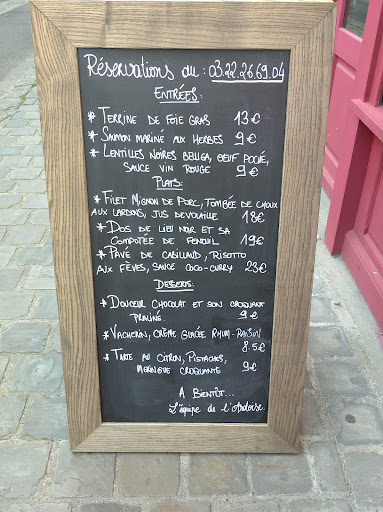 Réservations au : 03.22.26.69.04
ENTRÉES :
* TERRINE DE FOIE GRAS 13€
* SAUMON MARINÉ AUX HERBES 9€
* LENTILLES NOIRES BELUGA, OEUF POCHÉ,
SAUCE VIN ROUGE 9€
PLATS :
* FILET MIGNON DE PORC, TOMBÉE DE CHOUX
AUX LARDONS, JUS DE VOLAILLE 18€
* DOS DE LIEU NOIR ET SA
COMPOTÉE DE FENOUIL 19€
* PAVÉ DE CABILLAUD, RISOTTO
AUX FÈVES, SAUCE COCO-CURRY 23€
DESSERTS :
* DOUCEUR CHOCOLAT ET SON CROQUANT
PRALINÉ. 9€
* VACHERIN, CRÈME GLACÉE RHUM-RAISIN
8.5€
* TARTE AU CITRON, PISTACHES,
MERINGUE CROQUANTE 9€
A BIENTÔT...
L'équipe de l'Ardoise.